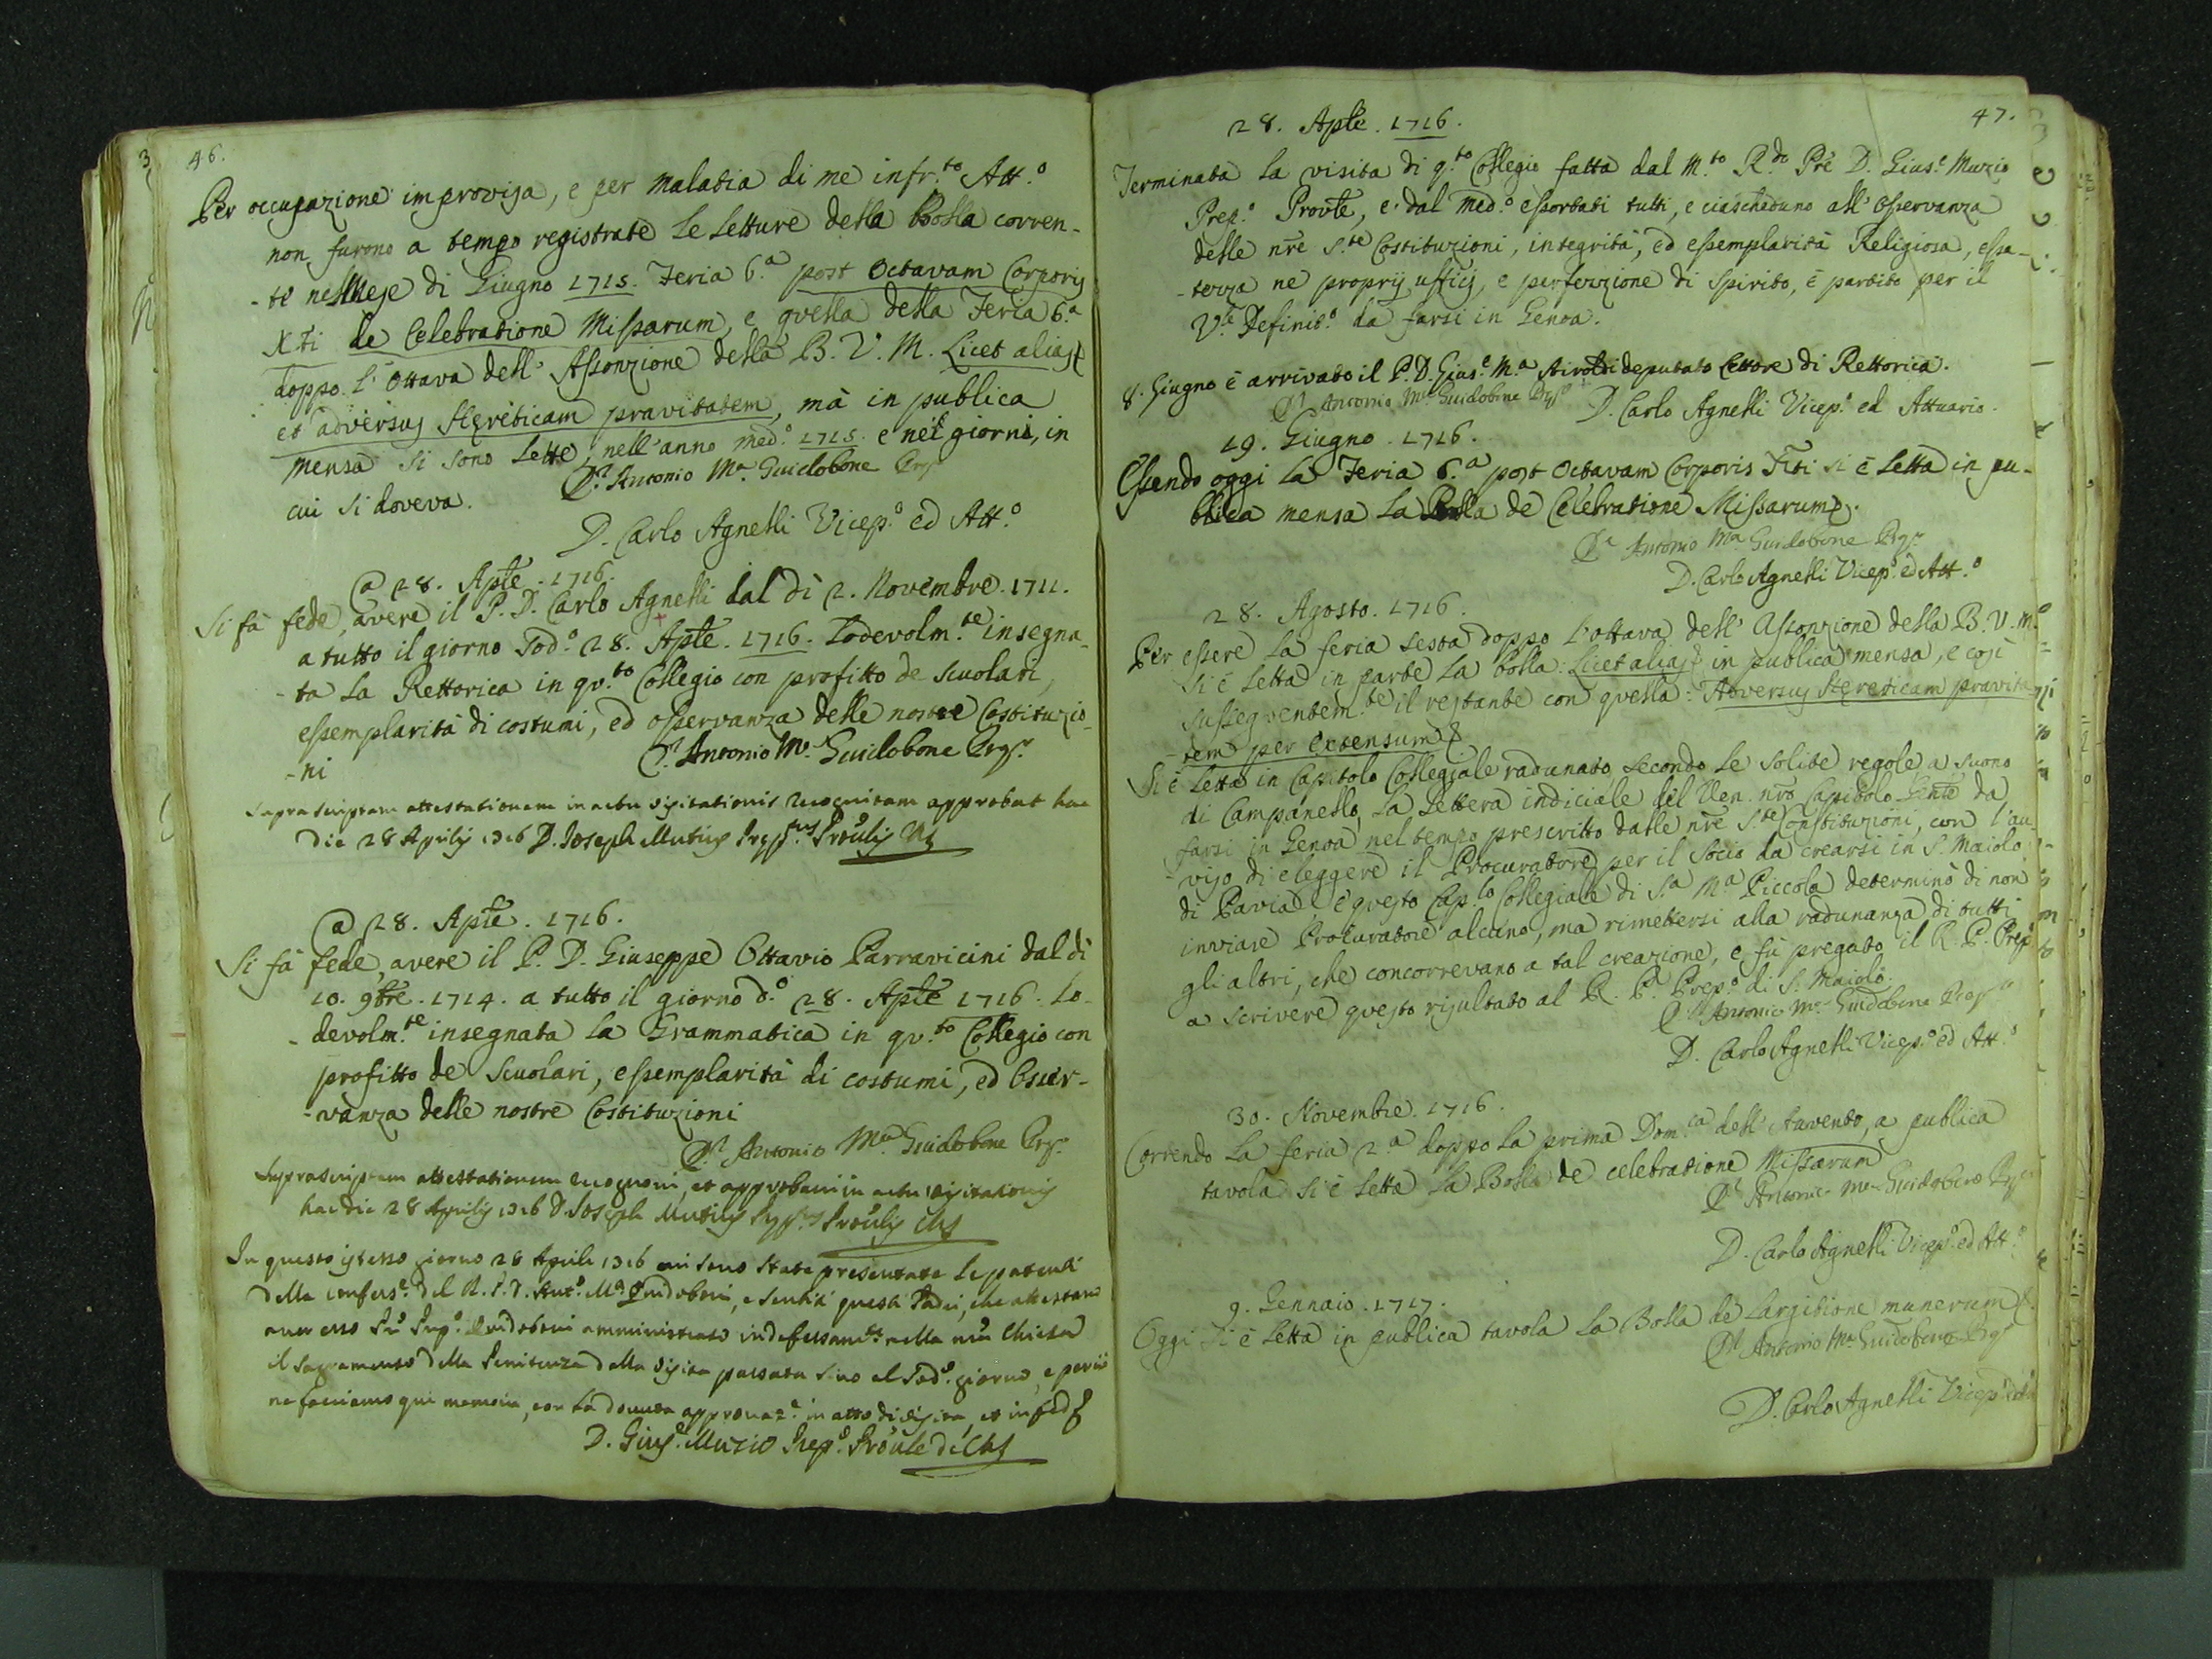 46.
Per occupazione improvisa, e per malatia di me infr.to Att.o
non furono a tempo registrate le letture della Bolla corren-
-te nel Mese di Giugno 1715. Feria 6.a post Octavam Corporis
Xti de Celebratione Missarum, e quella della Feria 6.a
doppo l'Ottava dell'Assonzione della B. V. M. Licet alias
et adversus Hereticam pravitatem, mà in publica
mensa si sono lette, nell'anno med.o 1715. e nei giorni, in
cui si doveva.
D. Antonio M.a Guidobone
D. Carlo Agnelli Vicep.o ed Att.o
a 28. Aple. 1716.
Si fà fede, avere il P. D. Carlo Agnelli dal dì 2. Novembre. 1711.
a tutto il giorno sod.o 28. Aple. 1716. Lodevolm.te insegna-
-ta la Rettorica in qu.to Collegio con profitto de scuolari,
essemplarità di costumi, ed osservanza delle nostre Costituzio-
-ni
D. Antonio M.a Guidobone
Suprascriptam attestationem in actu visitationis recognitam approbat hac
die 28 Aprilis 1716 D. Joseph Mutius Prov̄lis
a 28. Aple. 1716.
Si fà fede, avere il P. D. Giuseppe Ottavio Parravicini dal dì
10. 9bre. 1714. a tutto il giorno d.o 28. Aple 1716. Lo-
-devolm.te insegnata la Grammatica in qu.to Collegio con
profitto de Scuolari, essemplarità di costumi, ed osser-
-vanza delle nostre Costituzioni
D. Antonio M.a Guidobone
Suprascriptam attestationem recognovi, et approbavi in actu visitationis
hac die 28 Aprilis 1716 D. Joseph Mutius Prov̄lis
In questo istesso giorno 28 Aprile 1716 mi sono state presentate le patenti
della confess.e del R. P. D. Ant.o M.a Guidoboni, e sentiti questi Padri, che attestano
aver esso Prep.o Guidoboni amministrato indefessam.te nella nr̄a Chiesa
il sagramento della Penitenza dalla visita passata sino al sod.o giorno, e perciò
ne facciamo qui memoria, con la dovuta approvaz.e in atto di visita, et in fede
D. Gius.e Muzio Prep.o Prov̄le
47.
28. Aple. 1716.
Terminata la visita di q.to Collegio fatta dal M.to R.do Prē D. Gius.e Muzio
Prep.o Provle, e dal med.o essortati tutti, e ciascheduno all'osservanza
delle nr̄e S.te Costituzioni, integrità, ed essemplarità Religiosa, essa-
-tezza ne proprij ufficij, e perfezzione di spirito, è partito per il
Definit.o da farsi in Genoa.
8. Giugno è arrivato il P. D. Gius.e M.a Airoldi deputato Lettore di Rettorica.
D. Antonio M.a Guidobone
D. Carlo Agnelli Vicep.o ed Attuario.
19. Giugno. 1716.
Essendo oggi la Feria 6.a post Octavam Corporis Xti si è letta in pu-
blica mensa la Bolla de Celebratione Missarum.
D. Antonio M.a Guidobone
D. Carlo Agnelli Vicep.o ed Att.o
28. Agosto. 1716.
Per essere la feria sesta doppo l'ottava dell'Assonzione della B. V. M.
si è letta in parte la bolla: Licet alias in publica mensa, e così
sussequentem.te il restante con quella: Adversus Hereticam pravita-
-tem per extensum
Si è letta in Capitolo Collegiale radunato, secondo le solite regole, a suono
di Campanello, la Lettera indiciale del Ven. nrō Capitolo Gente da
farsi in Genoa nel tempo prescritto dalle nr̄e S.te Constituzioni, con l'au-
-viso di eleggere il Procuratore per il Socio da crearsi in S. Maiolo
di Pavia. E questo Cap.lo Collegiale di S.a M.a Piccola determinò di non
inviare Procuratore alcuno, ma rimettersi alla radunanza di tutti
gli altri, che concorrevano a tal creazione, e fù pregato il R. P. Prep.o
a scrivere questo risultato al R. P. Prep.o di S. Maiolo.
D. Antonio M.a Guidobone
D. Carlo Agnelli Vicep.o ed Att.o
30. Novembre. 1716.
Correndo la feria 2.a doppo la prima Dom.ca dell'Auvento, a publica
tavola si è letta la Bolla de celebratione Missarum
D. Antonio M.a Guidobone
D. Carlo Agnelli Vicep.o ed Att.o
9. Gennaio. 1717.
Oggi si è letta in publica tavola la Bolla de largitione munerum
D. Antonio M.a Guidobone
D. Carlo Agnelli Vicep.o